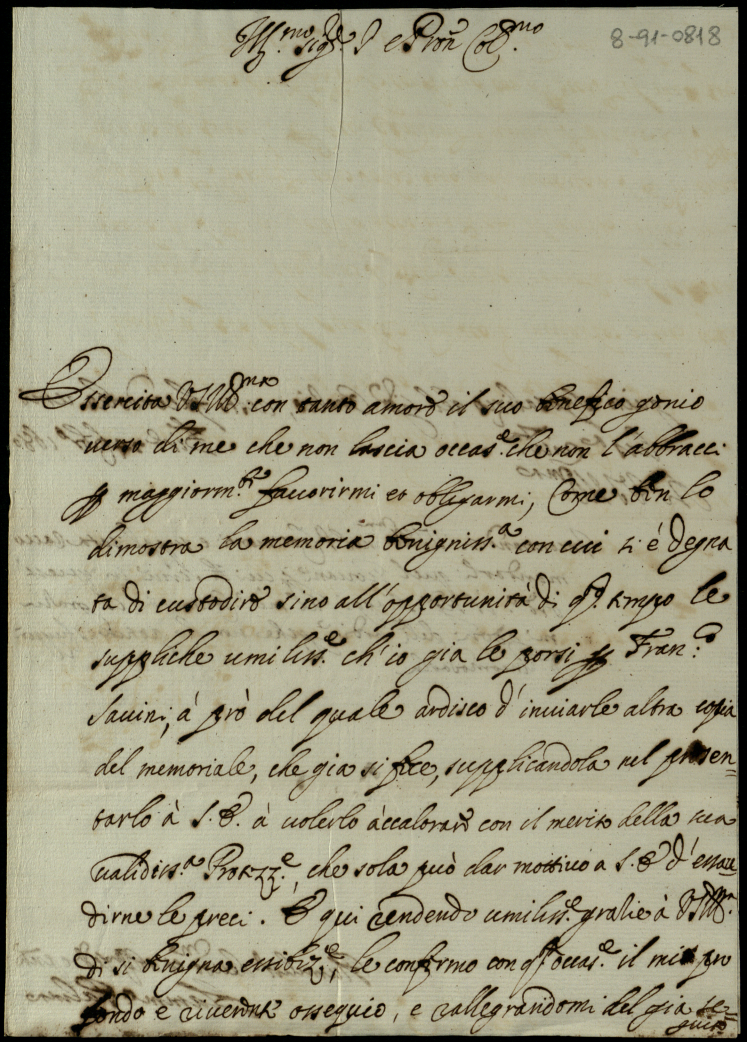 8-91-0818
Ill.mo Sig.re e Pron Col.mo
Essercita VS Ill.ma con tanto amore il suo benefico genio
verso di me che non lascia occas.e che non l'abbracci
p maggiorm.te favorirmi et obligarmi, Come ben lo
dimostra la memoria benigniss.a con cui si é degna
ta di custodire sino all'opportunità di q.o tempo le
suppliche umiliss.e ch'io gia le porsi p Fran.co
Savini, á prò del quale ardisco d'inviarle altra copia
del memoriale, che gia si fece, supplicandola nel presen=
tarlo à S. E. à volerlo accalorare con il merito della sua
validiss.a Protez.e, che sola può dar mottivo a S. E. d'essau=
dirne le preci. E qui rendendo umiliss.e gratie à VS Ill.ma
di si benigna essibiz.e, le confermo con q.a occas.e il mio pro
fondo e riverente ossequio, e rallegrandomi del gia se=
guito